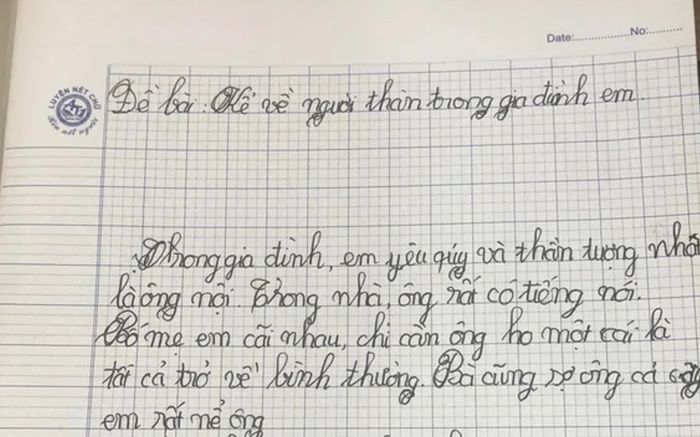 Date:..................No:..........
LUYỆN NÉT CHỮ
Rèn nết người
Đề bài: Kể về người thân trong gia đình em
Trong gia đình, em yêu qúy và thần tượng nhấ
là ông nội. Trong nhà, ông rất có tiếng nói.
Bố mẹ em cãi nhau, chỉ cần ông ho một cái là
tất cả trở về bình thường. Bà cũng sợ ông cả
em rất nể ông